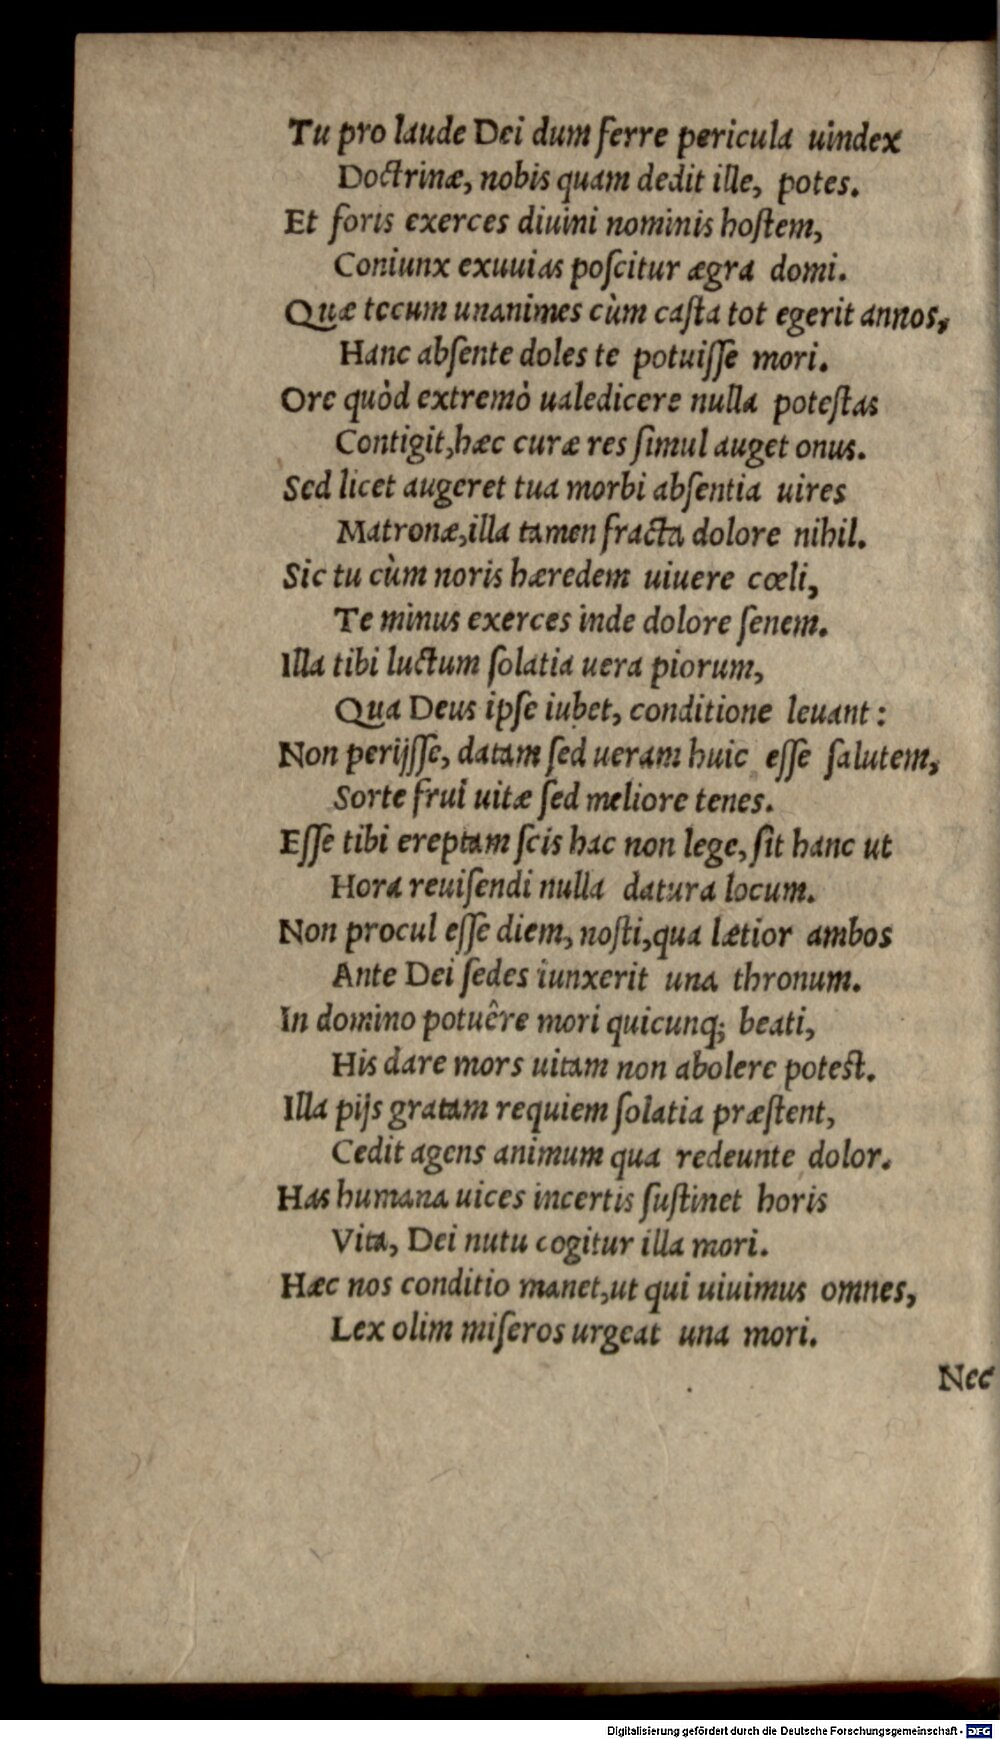 Tu pro laude Dei dum ferre pericula uindex
Doctrinæ, nobis quam dedit ille, potes.
Et foris exerces diuini nominis hostem,
Coniunx exuuias poscitur ægra domi.
Quæ tecum unanimes cùm casta tot egerit annos,
Hanc absente doles te potuisse mori.
Ore quòd extremò ualedicere nulla potestas
Contigit, hæc curæ res simul auget onus.
Sed licet augeret tua morbi absentia uires
Matronæ, illa tamen fracta dolore nihil.
Sic tu cùm noris hæredem uiuere cœli,
Te minus exerces inde dolore senem.
Illa tibi luctum solatia uera piorum,
Qua Deus ipse iubet, conditione leuant:
Non perijsse, datam sed ueram huic esse salutem,
Sorte frui uitæ sed meliore tenes.
Esse tibi ereptam scis hac non lege, sit hanc ut
Hora reuisendi nulla datura locum.
Non procul esse diem, nosti, qua lætior ambos
Ante Dei sedes iunxerit una thronum.
In domino potuêre mori quicunq; beati,
His dare mors uitam non abolere potest.
Illa pijs gratam requiem solatia præstent,
Cedit agens animum qua redeunte dolor.
Has humana uices incertis sustinet horis
Vita, Dei nutu cogitur illa mori.
Hæc nos conditio manet, ut qui uiuimus omnes,
Lex olim miseros urgeat una mori.
Nec
Digitalisierung gefördert durch die Deutsche Forschungsgemeinschaft - DFG